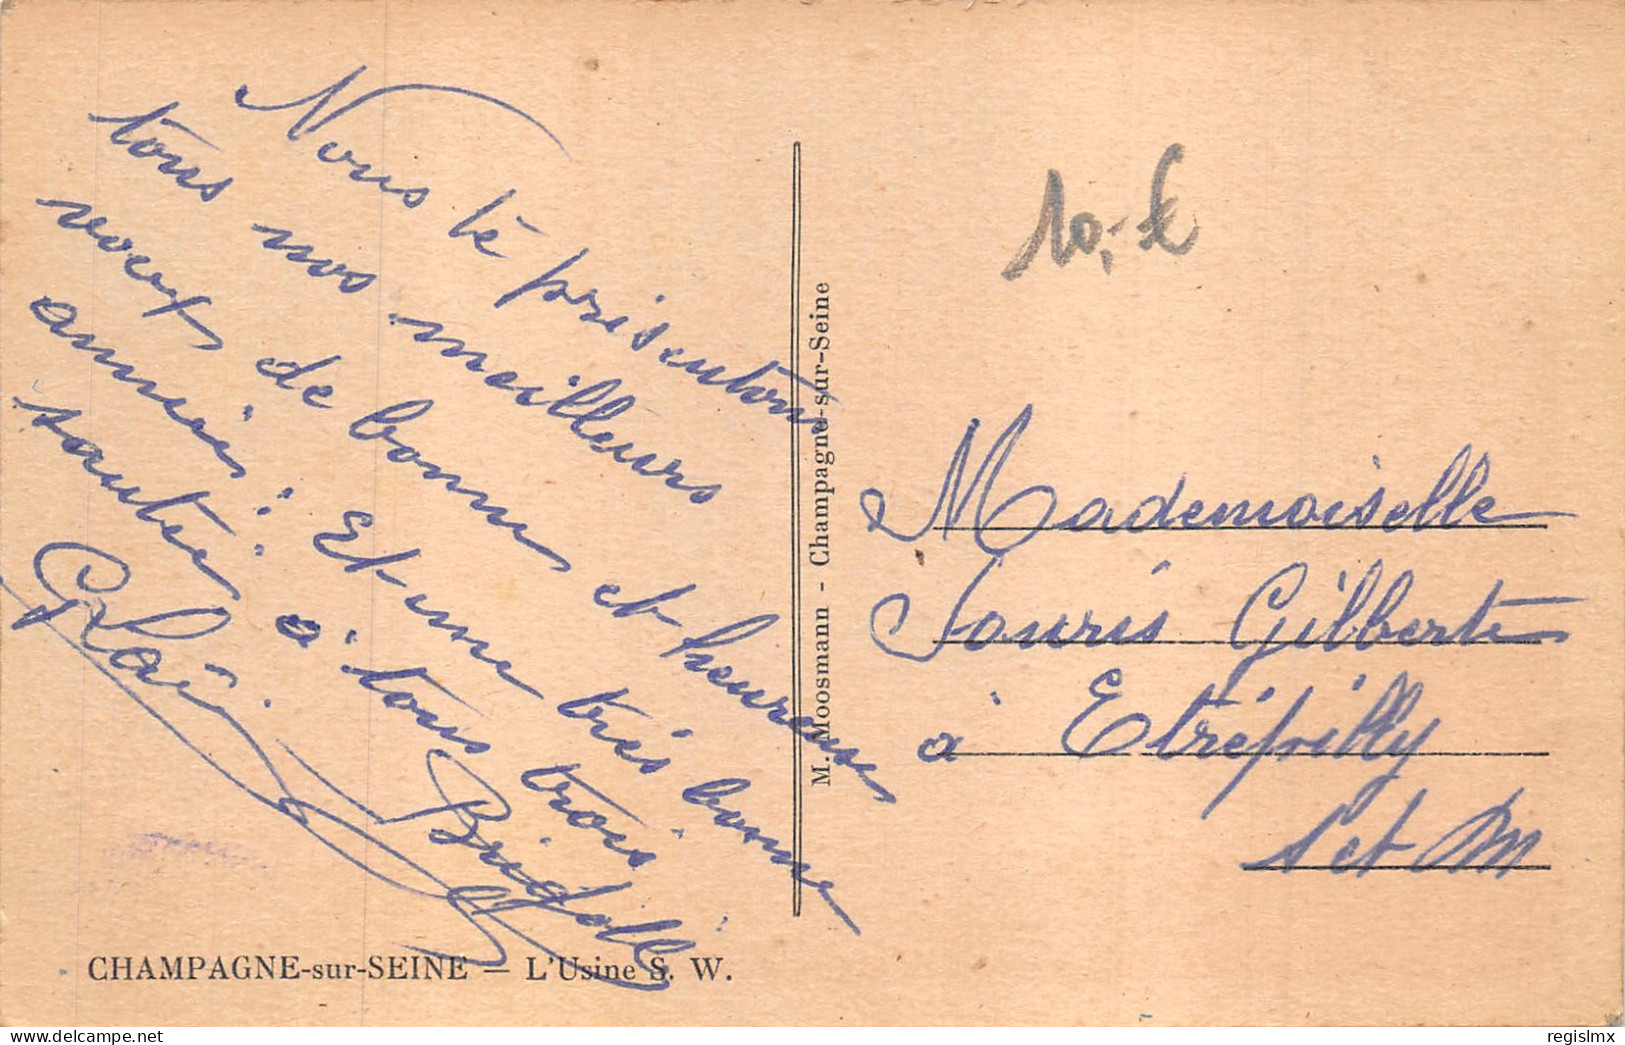 Nous te présentons
tous nos meilleurs
voeux de bonne et heureuse
année : Et une très bonne
santée à tous trois
10,-€
Mademoiselle
Souris Gilberte
à Etrépilly
S et M
M. Moosmann - Champagne-sur-Seine
CHAMPAGNE-sur-SEINE — L'Usine S. W.
regislmx